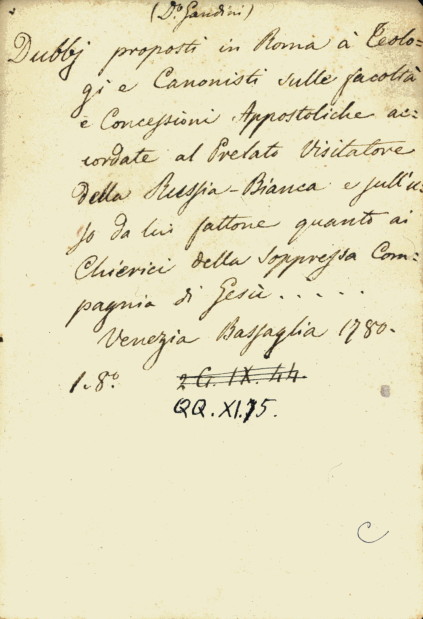 (D.º Gandini)
Dubbj proposti in Roma à Teolo=
gi e Canonisti sulle facoltà
e Concessioni Appostoliche ac=
cordate al Prelato Visitatore
della Russia-Bianca e sull'u=
so da lui fattone quanto ai
Chierici della soppressa Com=
pagnia di Gesù.....
Venezia Bassaglia 1780.
1. 8º
2 G. IX. 44.
QQ.XI.75.
C